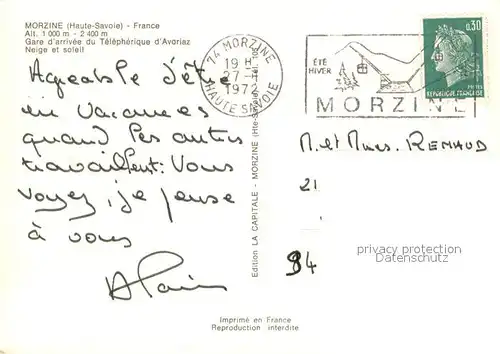 MORZINE (Haute-Savoie) - France
Alt. 1 000 m - 2 400 m
Gare d'arrivée du Téléphérique d'Avoriaz
Neige et soleil
Agréable d'être
en vacances
quand les autres
travaillent. Vous
voyez, je pense
à vous
Alain
74 MORZINE
19 H
27-1
1972
HAUTE SAVOIE
ÉTÉ
HIVER
MORZINE
0,30
REPUBLIQUE FRANÇAISE
Edition LA CAPITALE - MORZINE (Hte-Savoie)
M. et Mme. RENAUD
21
94
privacy protection
Datenschutz
Imprimé en France
Reproduction interdite